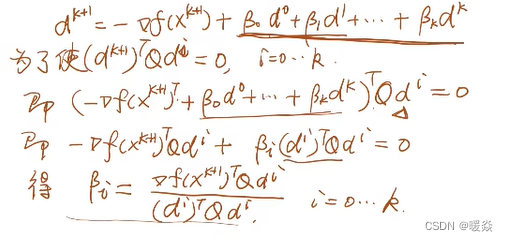 d^{k+1} = -∇f(x^{k+1}) + β₀d⁰ + β₁d¹ + ⋯ + β_k d^k
为了使(d^{k+1})^T Q d^i = 0, i=0⋯k.
即 (-∇f(x^{k+1})^T + β₀d⁰ + ⋯ + β_k d^k)^T Q d^i = 0
即 -∇f(x^{k+1})^T Q d^i + β_i (d^i)^T Q d^i = 0
得 β_i = ∇f(x^{k+1})^T Q d^i / (d^i)^T Q d^i. i=0⋯k.
CSDN @暖焱